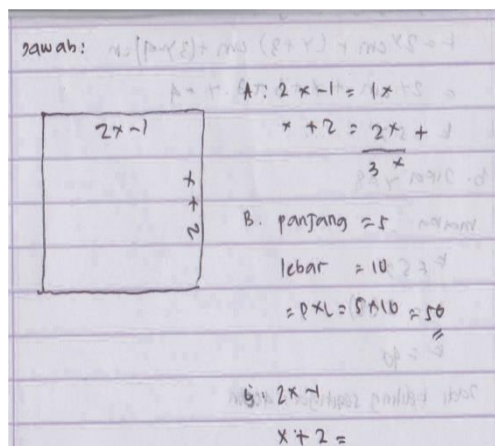 Jawab:
2x-1
x+2
A: 2x-1 = 1x
x+2 = 2x +
3x
B. panjang = 5
lebar = 10
= PXL = 5X10 = 50
2x-1
x+2 =